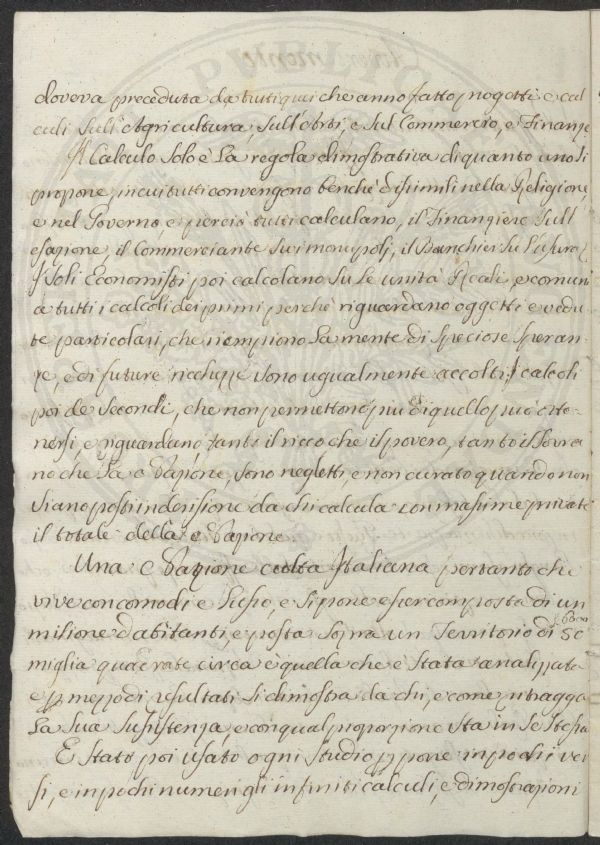 doveva preceduta da tutti qui che anno fatto progetti e cal
culi sull'Agricultura, sull'Arti, e sul Commercio, e Finanze
Il Calculo solo è la regola dimostrativa di quanto uno si
propone, in cui tutti convengono benchè dissimili nella Religione,
e nel Governo, e perciò tutti calculano, il Finanziere sull'
esazione, il Commerciante su i monopoli, il Banchier su l'usura
I soli Economisti poi calcolano su le unità Reali, e comuni
a tutti i calcoli dei primi perchè riguardano oggetti e vedu
te particolari, che riempiono la mente di speciose speran
ze, e di future ricchezze sono ugualmente accolti; I calcoli
poi de secondi, che non permettono più di quello può otte
nersi, e riguardano tanto il ricco che il povero, tanto il Sovra
no che la Nazione, sono negletti, e non curato quando non
siano posti in derisione da chi calcula con massime private
il totale della Nazione
Una Nazione colta Italiana pertanto che
vive con comodi e lusso, e si pone esser composta di un
milione d'abitanti, e posta sopra un Territorio di
miglia quadrate circa è quella che è stata analizzata
e per mezzo di resultati si dimostra da chi, e come ritragga
la sua sussistenza, e con qual proporzione sta in se stessa
E stato poi usato ogni studio per porre in pochi ver
si, e in pochi numeri gli infiniti calculi, e dimostrazioni